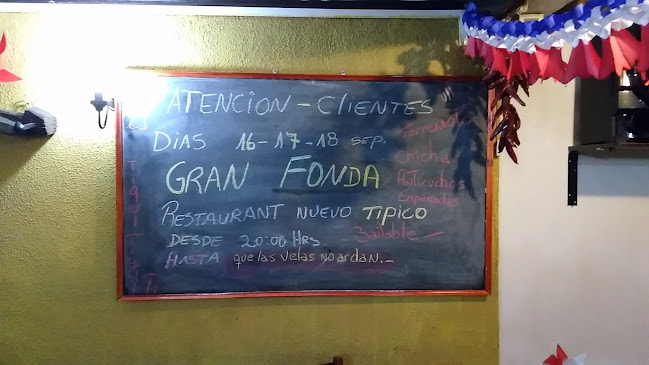 ATENCION - CLIENTES !!!
DIAS 16 - 17 - 18 SEP.
GRAN FONDA
RESTAURANT NUEVO TIPICO
DESDE 20:00 HRS
HASTA que las velas no ardan.-
Terremoto
Chicha
Anticuchos
Empanadas
Bailable -
TIQUI TIQUI TI